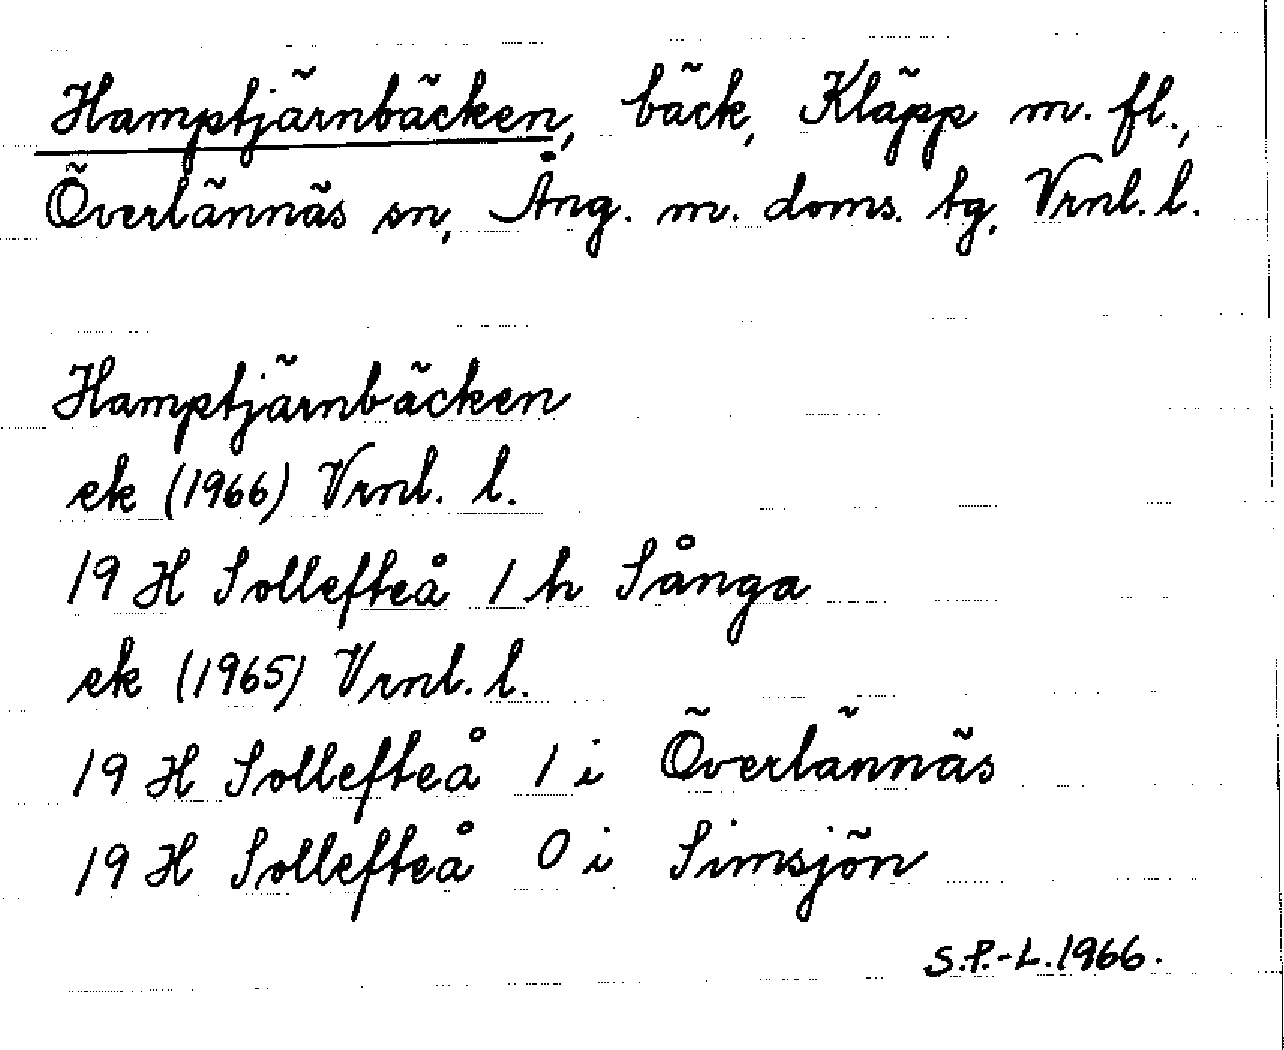 Hamptjärnbäcken, bäck, Kläpp m. fl.,
Överlännäs sn, Ång. m. doms. tg. Vrnl. l.
Hamptjärnbäcken
ek (1966) Vrnl. l.
19 H Sollefteå 1 h Sånga
ek (1965) Vrnl. l.
19 H Sollefteå 1 i Överlännäs
19 H Sollefteå 0 i Simsjön
S.P.-L. 1966.